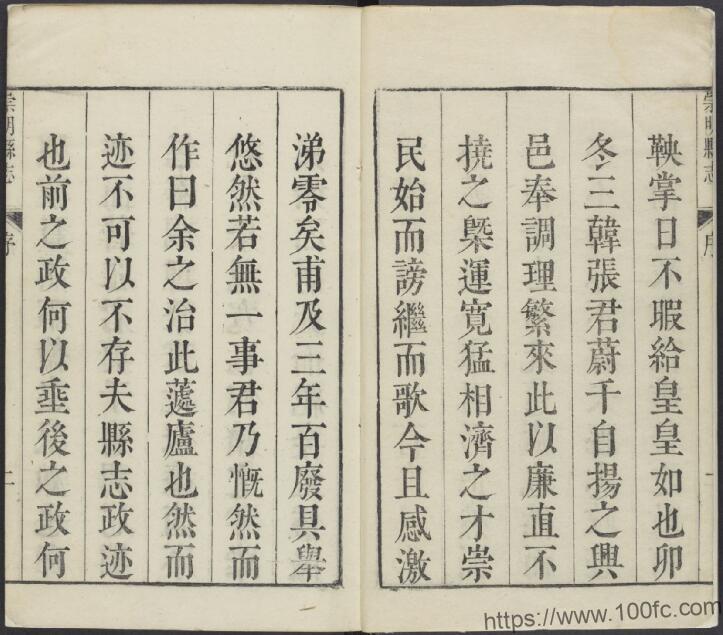 崇明縣志
序
一
鞅掌日不暇給皇皇如也卯
冬三韓張君蔚千自揚之興
邑奉調理繁來此以廉直不
撓之槩運寬猛相濟之才崇
民始而謗繼而歌今且感激
涕零矣甫及三年百廢具舉
悠然若無一事君乃慨然而
作曰余之治此蘧廬也然而
迹不可以不存夫縣志政迹
也前之政何以垂後之政何
崇明縣志
序
二
https://www.100fc.com